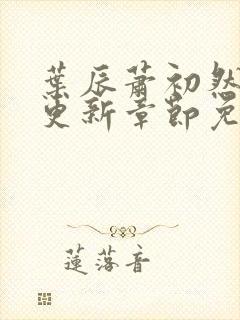 葉辰蕭初然
更新章節免
蓮落音